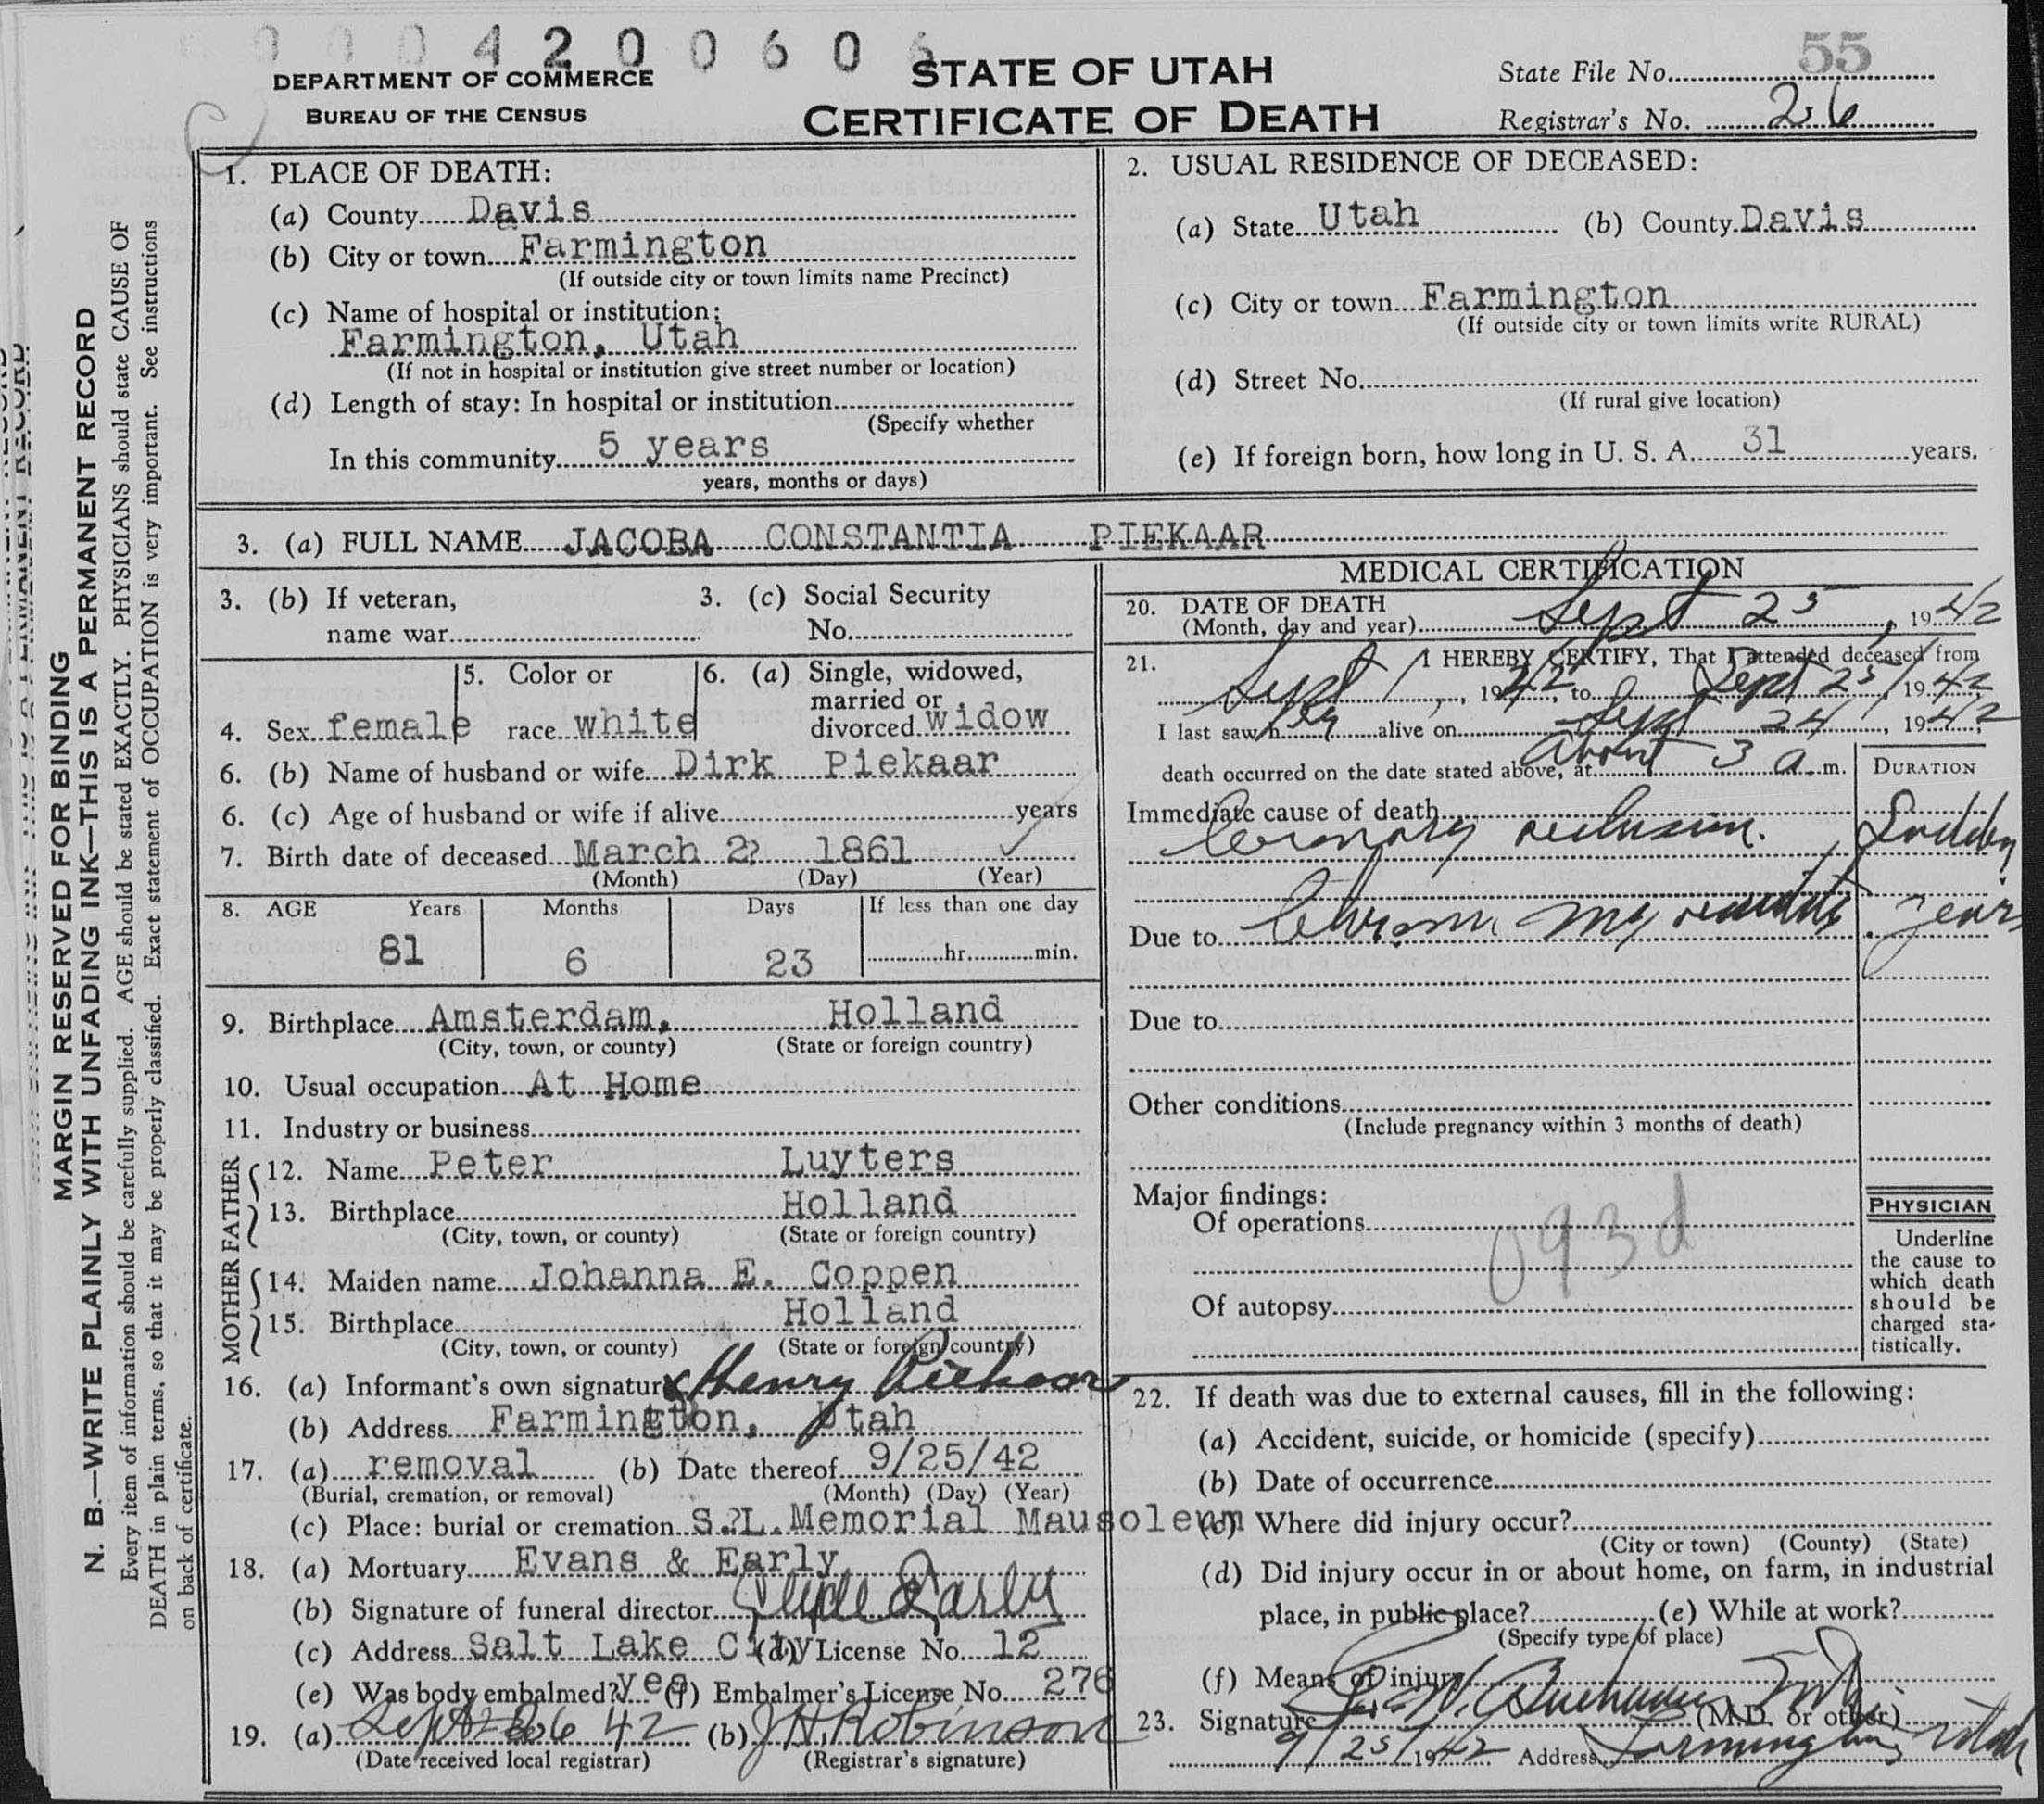 0 0 0 4 2 0 0 6 0 6
DEPARTMENT OF COMMERCE
BUREAU OF THE CENSUS
STATE OF UTAH
CERTIFICATE OF DEATH
State File No. 55
Registrar's No. 26
MARGIN RESERVED FOR BINDING
N. B.—WRITE PLAINLY WITH UNFADING INK—THIS IS A PERMANENT RECORD
Every item of information should be carefully supplied. AGE should be stated EXACTLY. PHYSICIANS should state CAUSE OF
DEATH in plain terms, so that it may be properly classified. Exact statement of OCCUPATION is very important. See instructions
on back of certificate.
1. PLACE OF DEATH:
(a) County Davis
(b) City or town Farmington
(If outside city or town limits name Precinct)
(c) Name of hospital or institution:
Farmington, Utah
(If not in hospital or institution give street number or location)
(d) Length of stay: In hospital or institution
(Specify whether
In this community 5 years
years, months or days)
2. USUAL RESIDENCE OF DECEASED:
(a) State Utah (b) County Davis
(c) City or town Farmington
(If outside city or town limits write RURAL)
(d) Street No.
(If rural give location)
(e) If foreign born, how long in U. S. A. 31 years.
3. (a) FULL NAME JACOBA CONSTANTIA PIEKAAR
3. (b) If veteran,
name war
3. (c) Social Security
No.
4. Sex female
5. Color or
race white
6. (a) Single, widowed,
married or
divorced widow
6. (b) Name of husband or wife Dirk Piekaar
6. (c) Age of husband or wife if alive years
7. Birth date of deceased March 2? 1861
(Month) (Day) (Year)
8. AGE Years Months Days If less than one day
81 6 23 hr. min.
9. Birthplace Amsterdam, Holland
(City, town, or county) (State or foreign country)
10. Usual occupation At Home
11. Industry or business
FATHER
12. Name Peter Luyters
13. Birthplace Holland
(City, town, or county) (State or foreign country)
MOTHER
14. Maiden name Johanna E. Coppen
15. Birthplace Holland
(City, town, or county) (State or foreign country)
16. (a) Informant's own signature x Henry Piekaar
(b) Address Farmington, Utah
17. (a) removal (b) Date thereof 9/25/42
(Burial, cremation, or removal) (Month) (Day) (Year)
(c) Place: burial or cremation S.L. Memorial Mausoleum
18. (a) Mortuary Evans & Early
(b) Signature of funeral director Clyde Early
(c) Address Salt Lake City (d) License No. 12
(e) Was body embalmed? yes (f) Embalmer's License No. 276
19. (a) Sept 26 42 (b) J H Robinson
(Date received local registrar) (Registrar's signature)
MEDICAL CERTIFICATION
20. DATE OF DEATH
(Month, day and year) Sept 25, 1942
21. I HEREBY CERTIFY, That I attended deceased from
Sept 1, 1942, to Sept 25, 1942
I last saw her alive on Sept 24, 1942,
death occurred on the date stated above, at about 3 a. m.
DURATION
Immediate cause of death
Coronary occlusion. Sudden
Due to Chronic myocarditis. years
Due to
Other conditions
(Include pregnancy within 3 months of death)
Major findings:
Of operations
093d
Of autopsy
PHYSICIAN
Underline
the cause to
which death
should be
charged sta-
tistically.
22. If death was due to external causes, fill in the following:
(a) Accident, suicide, or homicide (specify)
(b) Date of occurrence
(c) Where did injury occur?
(City or town) (County) (State)
(d) Did injury occur in or about home, on farm, in industrial
place, in public place? (e) While at work?
(Specify type of place)
(f) Means of injury
23. Signature W. Buchanan M.D. (M.D. or other)
9/25/1942 Address Farmington Utah